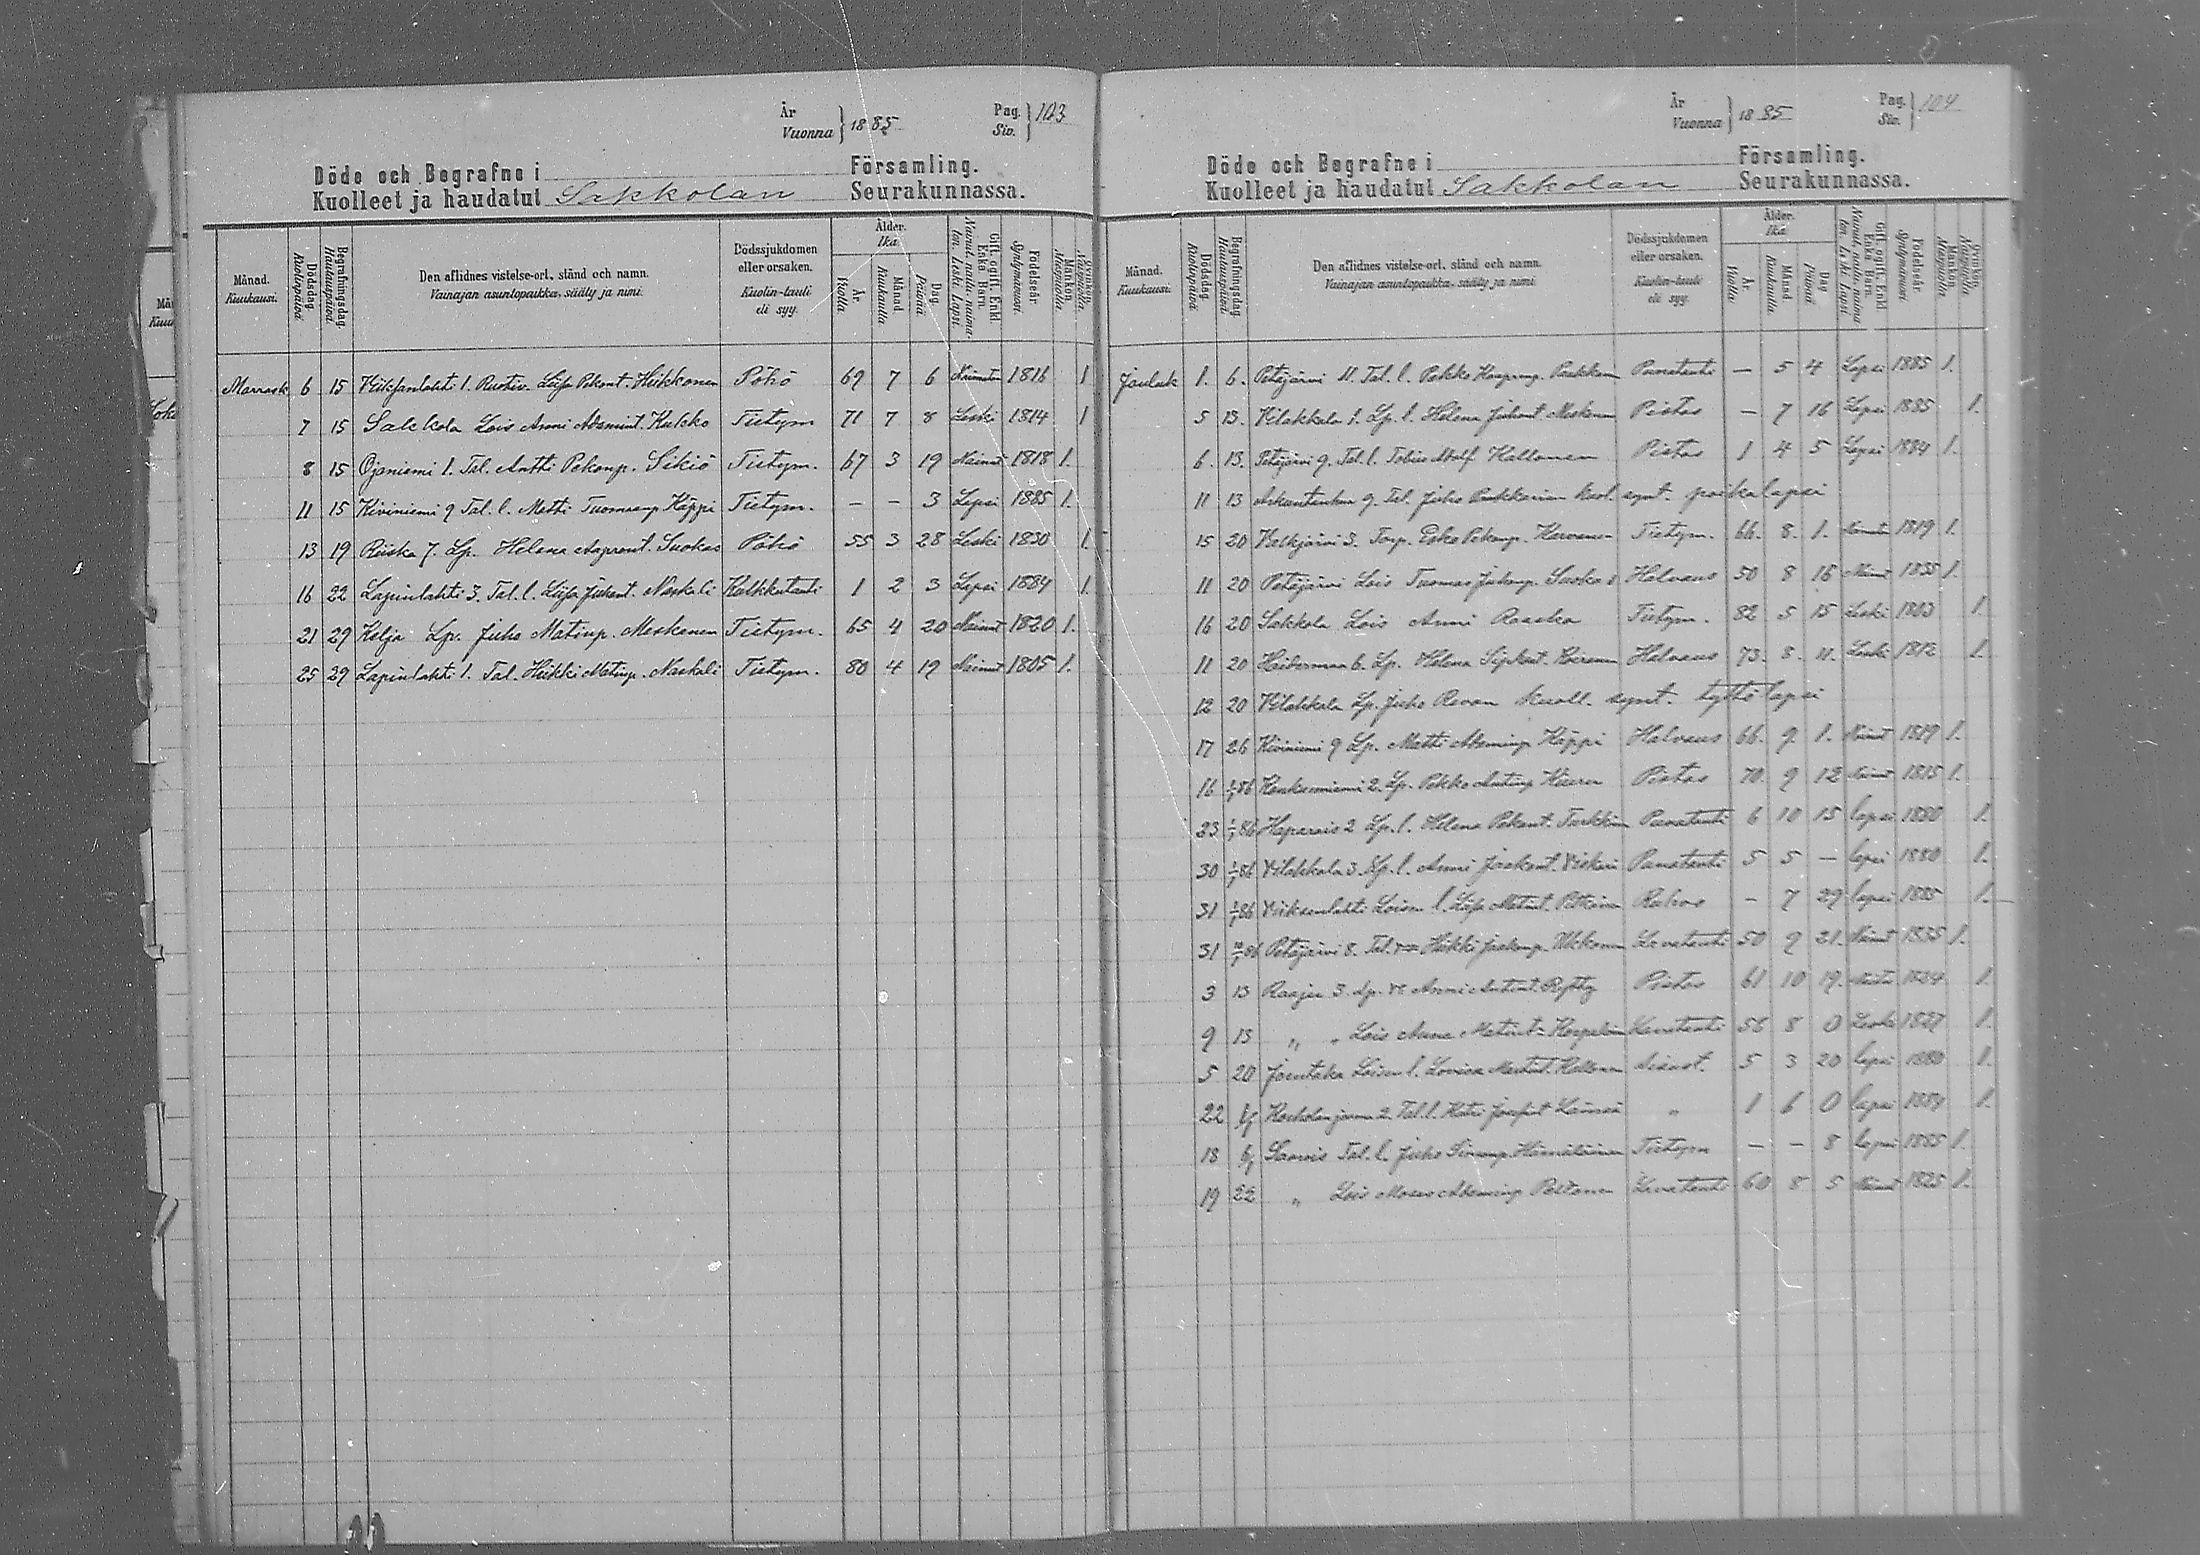 År Vuonna } 1885 Pag. Siv. } 103
Döde och Begrafne i Församling.
Kuolleet ja haudatut Sakkolan Seurakunnassa.
Månad. Kuukausi. Dödsdag. Kuolinpäivä. Begrafningsdag. Hautauspäivä. Den aflidnes vistelse-ort, stånd och namn. Vainajan asuntopaikka, sääty ja nimi. Dödssjukdomen eller orsaken. Kuolin-tauti eli syy. Ålder. Ikä. År. Vuotta Månad. Kuukautta Dag. Päivää Gift, ogift, Enkl. Enka Barn. Nainut, naitu, naimaton, Leski, Lapsi. Födelseår. Syntymävuosi. Mankön. Miespuolia. Qvinkön.
Marrask 6 15 Viiksanlahti 1. Ruotiv. Liisa Pekant. Heikkonen Pöhö 69 7 6 Naimaton 1816 1
7 15 Sakkola Lois Anni Adamint. Kukko Tietym 71 7 8 Leski 1814 1
8 15 Ojaniemi 1. Tal. Antti Pekanp. Sikiö Tietym. 67 3 19 Nainut 1818 1.
11 15 Kiviniemi 9 Tal. l. Matti Tuomaanp Käppi Tietym. — — 3 Lapsi 1885 1.
13 19 Riiska 7. Lp. Helena Aapront. Suokas Pöhö 55 3 28 Leski 1830 1.
16 22 Lapinlahti 3. Tal. l. Liisa Juhant. Naskali Kalkkutauti 1 2 3 Lapsi 1884 1.
21 29 Kelja Lp. Juho Matinp. Meskanen Tietym. 65 4 20 Nainut 1820 1.
25 29 Lapinlahti 1. Tal. Heikki Matinp. Naskali Tietym. 80 4 19 Nainut 1805 1.
År Vuonna } 1885 Pag. Siv. } 104
Döde och Begrafne i Församling.
Kuolleet ja haudatut Sakkolan Seurakunnassa.
Månad. Kuukausi. Dödsdag. Kuolinpäivä. Begrafningsdag Hautauspäivä Den aflidnes vistelse-ort, stånd och namn. Vainajan asuntopaikka, sääty ja nimi. Dödssjukdomen eller orsaken. Kuolin-tauti eli syy. Ålder. Ikä. År. Vuotta. Månad. Kuukautta. Dag. Päivää Gift, ogift, Enkl. Enka Barn. Födelseår. Syntymävuosi. Mankön. Miespuolia Qvinkön.
Jouluk 1. 6. Petäjärvi 11. Tal. l. Pekko Paukkun Punatauti — 5 4 Lapsi 1885 1.
5 13. Vilakkala 1. Lp. l. Helena Juhant. Meskanen Pistos — 7 16 Lapsi 1885 1.
6. 13. Petäjärvi 9. Tal. l. Tobias Adolf Hallonen Pistos 1 4 5 Lapsi 1884 1.
11 13 9. Tal. Juho Paukkusen kuol. synt. poikalapsi
15 20 Valkjärvi 3. Torp. Esko Pekanp. Tietym. 66. 8. 1. 1819 1.
11 20 Petäjärvi Lois Tuomas Juhanp. Suokas Halvaus 50 8 16 Nainut 1835 1.
16 20 Sakkola Lois Anni Raaska Tietym. 82 5 15 Leski 1803 1.
11 20 6. Lp. Helena Halvaus 73. 8. 11. Leski 1812 1.
12 20 Vilakkala Lp. Juho Revon kuoll. synt. tyttölapsi
17 26 Kiviniemi 9 Lp. Matti Adaminp Käppi Halvaus 66. 9. 1. Nainut 1819 1.
16 1/1 86 2. Lp. Pekko Antinp Kiuru Pistos 70. 9 12 Nainut 1815 1.
23 1/1 86 Haparais 2 Lp. l. Helena Pekant. Punatauti 6 10 15 lapsi 1880 1.
30 1/1 86 Vilakkala 3. Lp. l. Anni Jaakont. Punatauti 5 5 — lapsi 1880 1.
31 1/1 86 Viiksanlahti Loisen l. Liisa Matint. — 7 29 lapsi 1885 1.
31 86 Petäjärvi 8. Tal. Heikki Ukkonen 50 9 21. Nainut 1835 1.
3 13 Raaju 3. Lp. Anni Antint. Pistos 61 10 19. 1824 1.
9 13 „ „ Lois Anna Matint. 58 8 0 Leski 1827 1.
5 20 Joentaka Loisen l. Lovisa 5 3 20 lapsi 1880 1.
22 2. Tal. l. „ 1 6 0 lapsi 1884 1.
18 Tal. l. Juho Hämäläinen Tietym — — 8 lapsi 1885 1.
19 22 „ Lois Moses Adaminp 60 8 5 Nainut 1825 1.